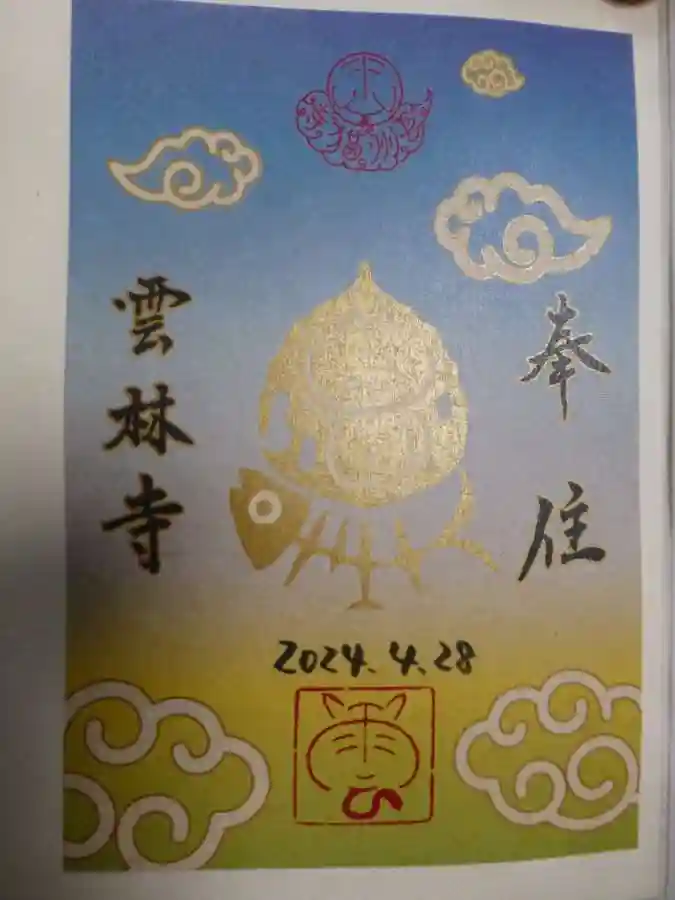 奉住
雲林寺
2024.4.28